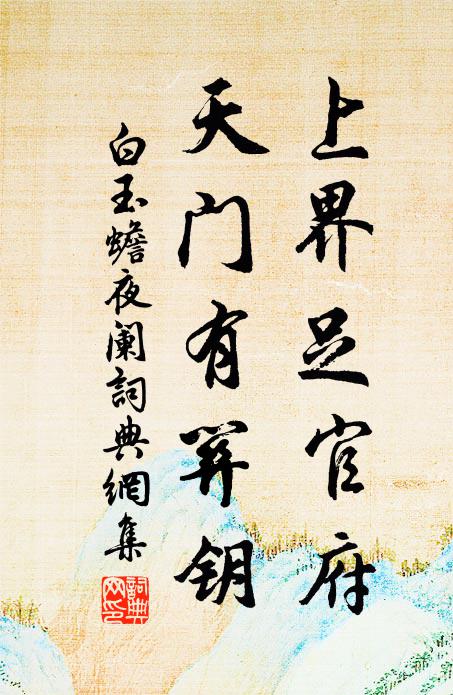 上界足官府
天门有关钥
白玉蟾夜阑詞典網集
詞典
网印